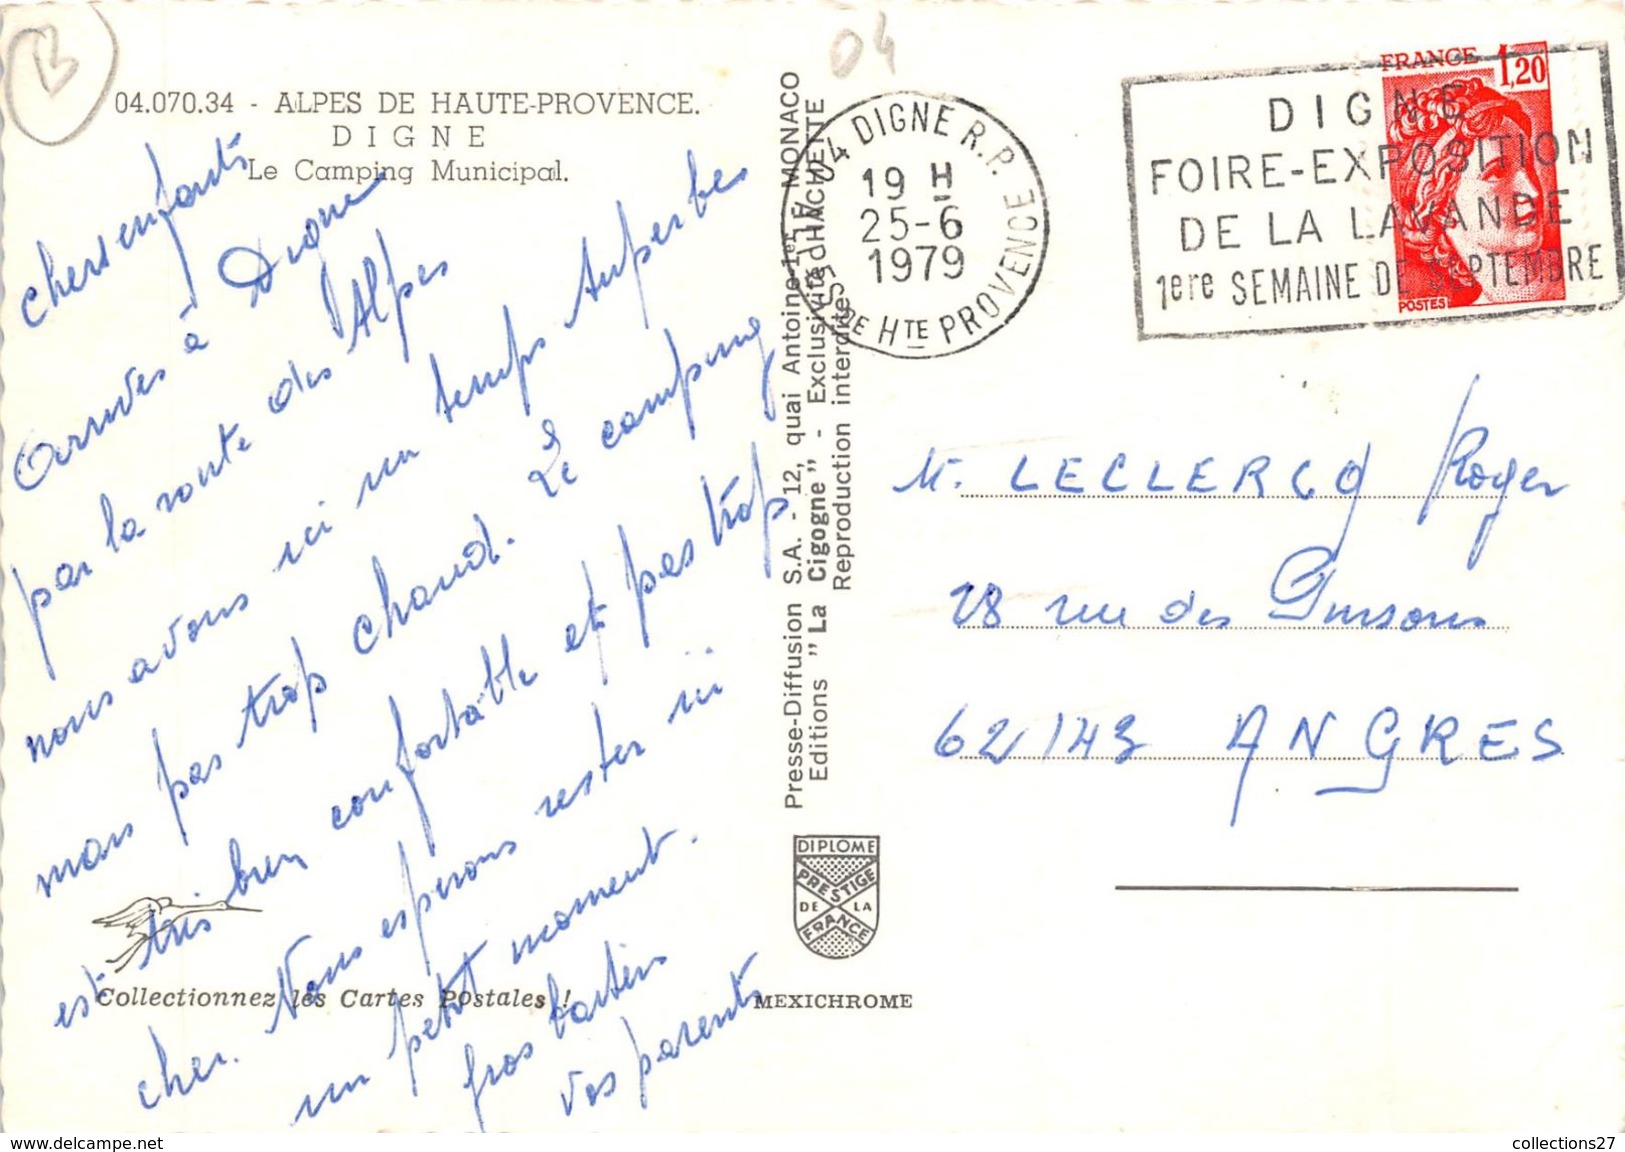 B
04
04.070.34 - ALPES DE HAUTE-PROVENCE.
DIGNE
Le Camping Municipal.
chers enfants
Arrivés à Digne
par la route des Alpes
nous avons ici un temps superbe
mais pas trop chaud. Le camping
est très bien confortable et pas trop
cher. Nous espérons rester ici
un petit moment.
gros
vos parents
Collectionnez les Cartes Postales !
Presse-Diffusion S.A. - 12, quai Antoine-1er MONACO
Editions "La Cigogne" - Exclusivité HACHETTE
Reproduction interdite
DIPLOME
PRESTIGE
DE LA
FRANCE
MEXICHROME
04 DIGNE R.P.
19 H
25-6
1979
DE HTE PROVENCE
FRANCE 1,20
POSTES
DIGNE
FOIRE-EXPOSITION
DE LA LAVANDE
1ere SEMAINE DE SEPTEMBRE
M. LECLERCQ Roger
28 rue des
62143 ANGRES
www.delcampe.net
collections27